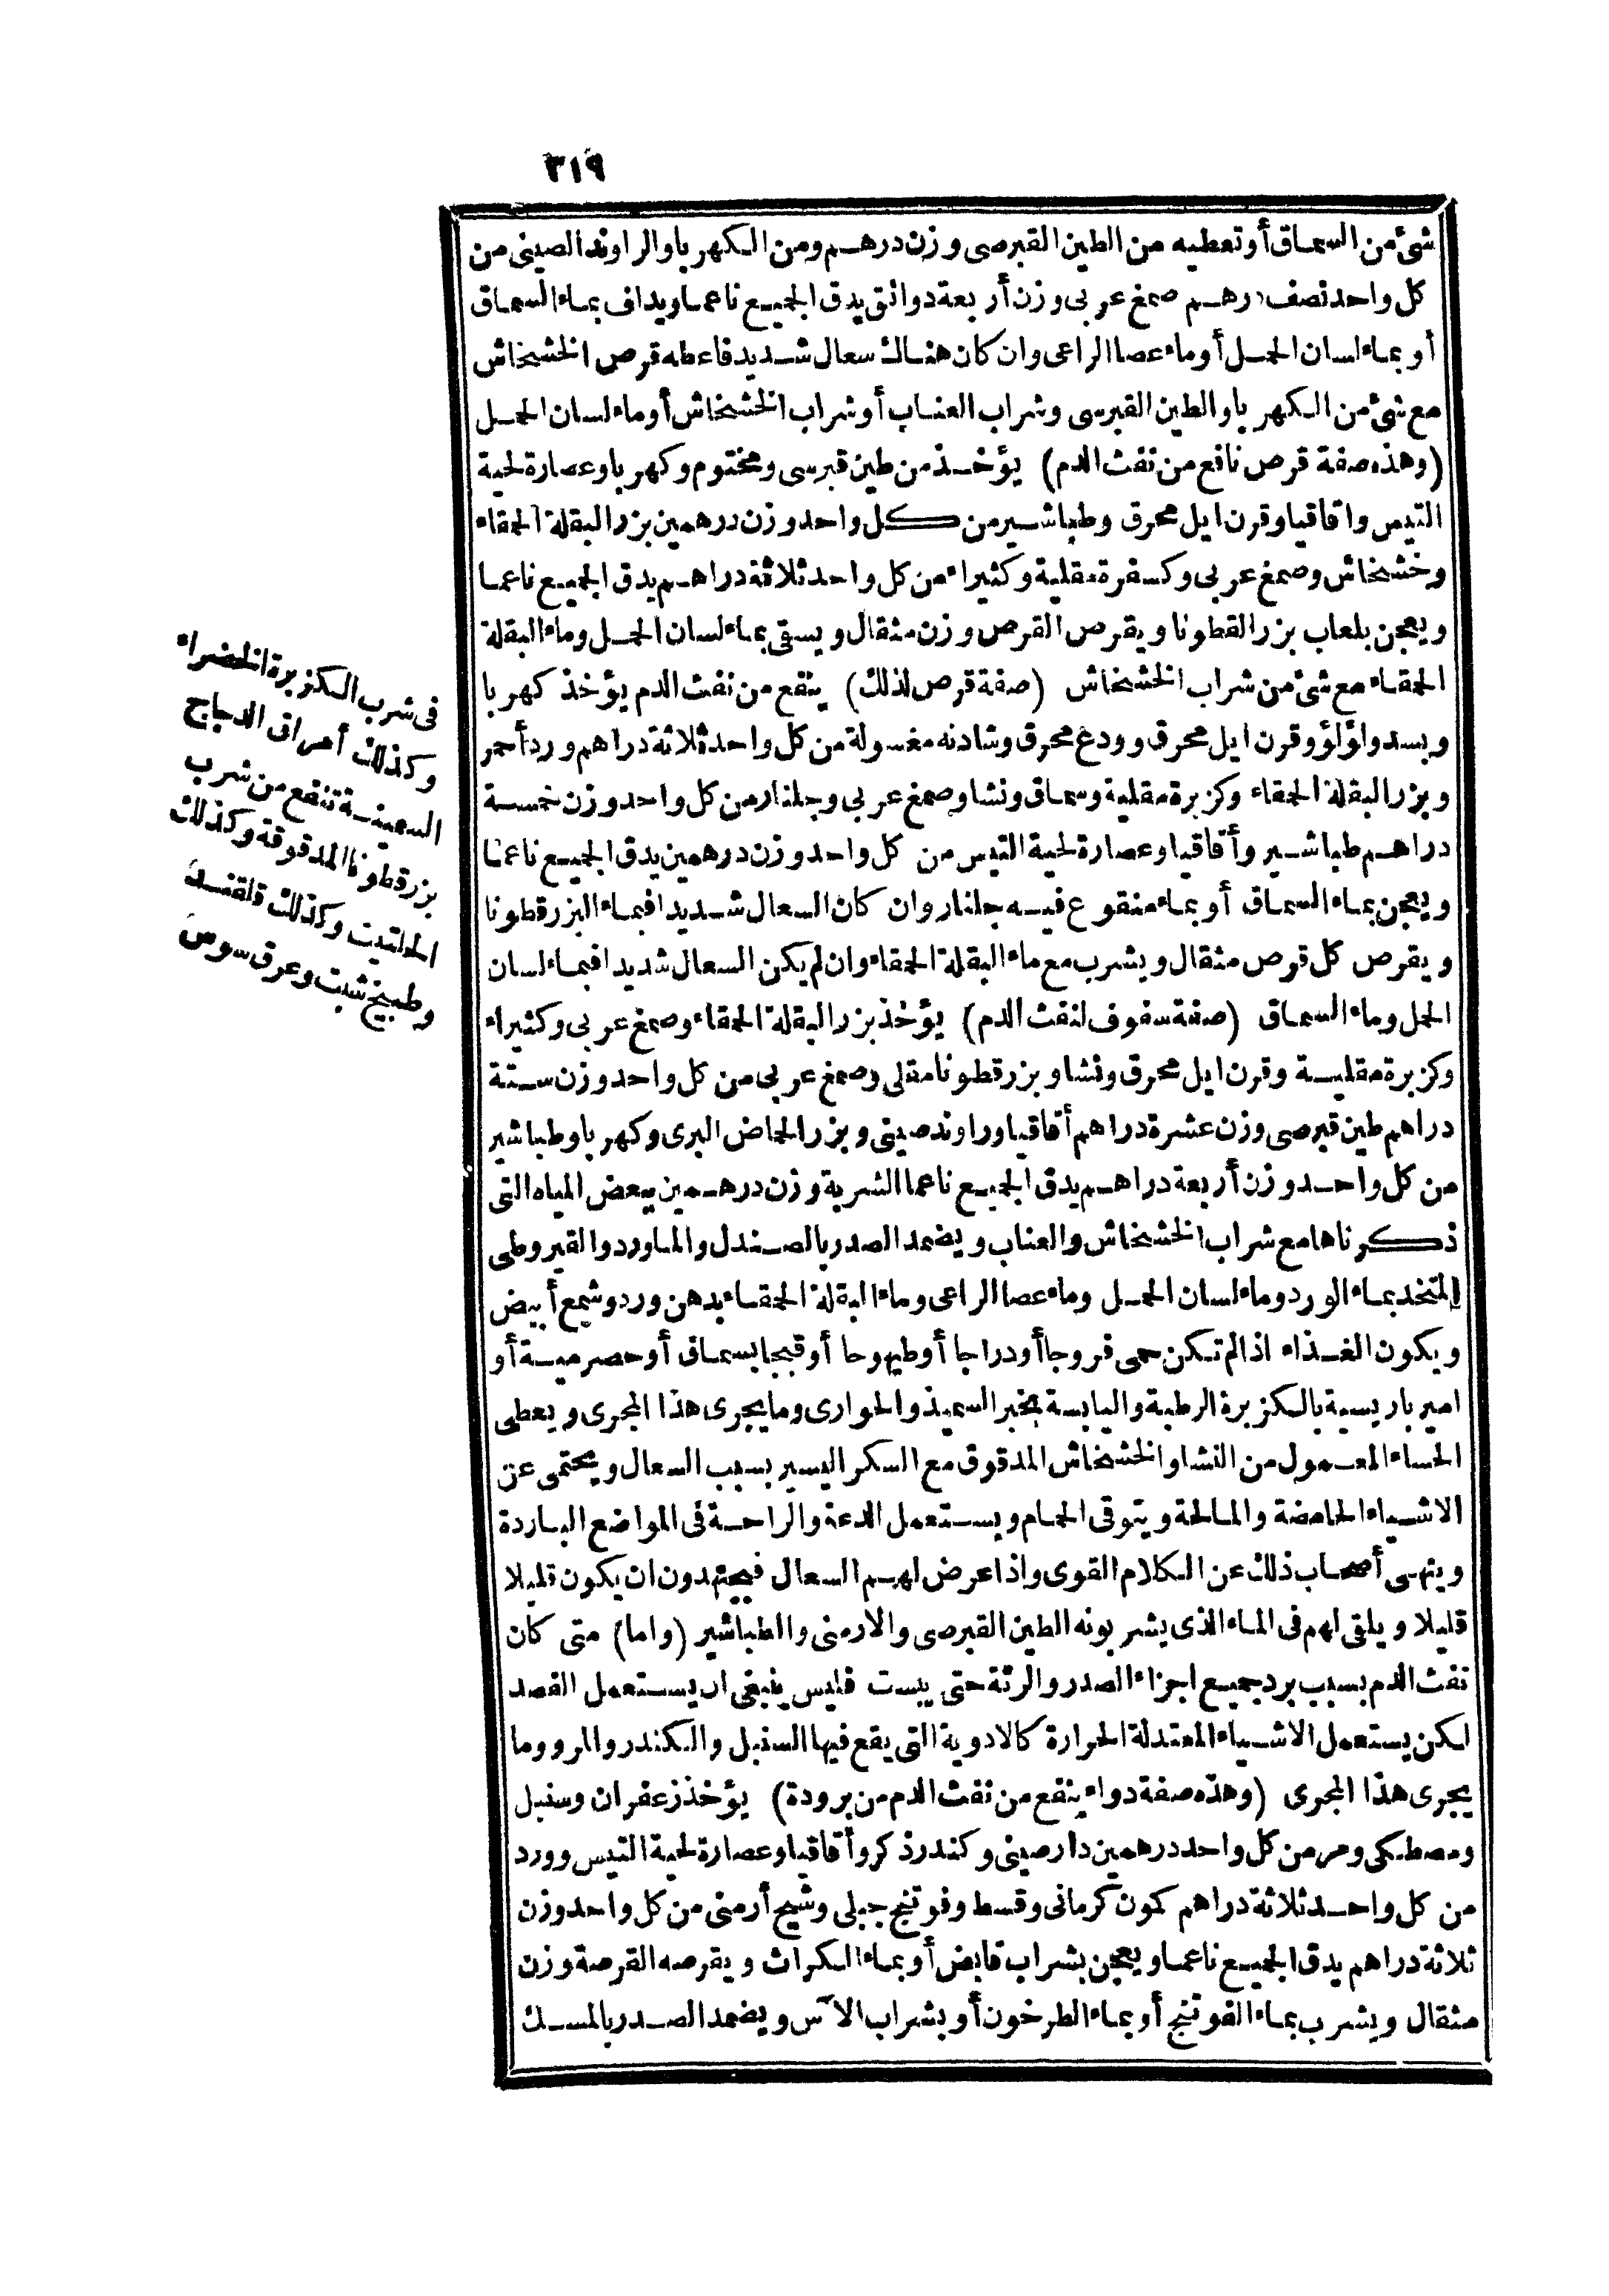 ٣١٩
شئ من السماق أو تعطيه من الطين القبرصى وزن درهم ومن الكهربا والراوند الصينى من
كل واحد نصف درهم صمغ عربى وزن أربعة دوانق يدق الجميع ناعما ويداف بماء السماق
أو بماء لسان الحمل أو ماء عصا الراعى وان كان هناك سعال شديد فاعطه قرص الخشخاش
مع شئ من الكهربا والطين القبرسى وشراب العناب أو شراب الخشخاش أو ماء لسان الحمل
(وهذه صفة قرص نافع من نفث الدم) يؤخذ من طين قبرسى ومختوم وكهربا وعصارة لحية
التيس واقاقيا وقرن ايل محرق وطباشير من كل واحد وزن درهمين بزر البقلة الحمقاء
وخشخاش وصمغ عربى وكسفرة مقلية وكثيراء من كل واحد ثلاثة دراهم يدق الجميع ناعما
ويعجن بلعاب بزر القطونا ويقرص القرص وزن مثقال ويسقى بماء لسان الحمل وماء البقلة
الحمقاء مع شئ من شراب الخشخاش (صفة قرص لذلك) ينفع من نفث الدم يؤخذ كهربا
وبسد ولؤلؤ وقرن ايل محرق وودع محرق وشادنه مغسولة من كل واحد ثلاثة دراهم ورد أحمر
وبزر البقلة الحمقاء وكزبرة مقلية وسماق ونشا وصمغ عربى وجلنار من كل واحد وزن خمسة
دراهم طباشير وأقاقيا وعصارة لحية التيس من كل واحد وزن درهمين يدق الجميع ناعما
ويعجن بماء السماق أو بماء منقوع فيه جلنار وان كان السعال شديدا فبماء البزر قطونا
ويقرص كل قرص مثقال ويشرب مع ماء البقلة الحمقاء وان لم يكن السعال شديدا فبماء لسان
الحمل وماء السماق (صفة سفوف لنفث الدم) يؤخذ بزر البقلة الحمقاء وصمغ عربى وكثيراء
وكزبرة مقلية وقرن ايل محرق ونشا وبزر قطونا مقلى وصمغ عربى من كل واحد وزن ستة
دراهم طين قبرصى وزن عشرة دراهم أقاقيا وراوند صينى وبزر الحماض البرى وكهربا وطباشير
من كل واحد وزن أربعة دراهم يدق الجميع ناعما الشربة وزن درهمين ببعض المياه التى
ذكرناها مع شراب الخشخاش والعناب ويضمد الصدر بالصندل والماورد والقيروطى
المتخذ بماء الورد وماء لسان الحمل وماء عصا الراعى وماء البقلة الحمقاء بدهن ورد وشمع أبيض
ويكون الغذاء اذا لم تكن حمى فروجا أو دراجا أو طيهوجا أو قبجا بسماق أو حصرمية أو
امير باريسية بالكزبرة الرطبة واليابسة بخبز السميذ والحوارى وما يجرى هذا المجرى ويعطى
الحساء المعمول من النشا والخشخاش المدقوق مع السكر اليسير بسبب السعال ويحتمى عن
الاشياء الحامضة والمالحة ويتوقى الحمام ويستعمل الدعة والراحة فى المواضع الباردة
وينهى أصحاب ذلك عن الكلام القوى واذا عرض لهم السعال فيجتهدون ان يكون قليلا
قليلا ويلقى لهم فى الماء الذى يشربونه الطين القبرصى والارمنى والطباشير (واما) متى كان
نفث الدم بسبب برد جميع اجزاء الصدر والرئة حتى يبست فليس ينبغى ان يستعمل الفصد
لكن يستعمل الاشياء المعتدلة الحرارة كالادوية التى يقع فيها السنبل والكندر والمر وما
يجرى هذا المجرى (وهذه صفة دواء ينفع من نفث الدم من برودة) يؤخذ زعفران وسنبل
ومصطكى ومر من كل واحد درهمين دارصينى وكندر ذكر وأقاقيا وعصارة لحية التيس وورد
من كل واحد ثلاثة دراهم كمون كرمانى وقسط وفوتنج جبلى وشيح أرمنى من كل واحد وزن
ثلاثة دراهم يدق الجميع ناعما ويعجن بشراب قابض أو بماء الكراث ويقرصه القرصة وزن
مثقال ويشرب بماء الفوتنج أو بماء الطرخون أو بشراب الآس ويضمد الصدر بالمسك
فى شرب الكزبرة الخضراء
وكذلك أمراق الدجاج
السمينة تنفع من شرب
بزر قطونا المدقوقة وكذلك
الحلتيت وكذلك
وطبيخ شبت وعرق سوس